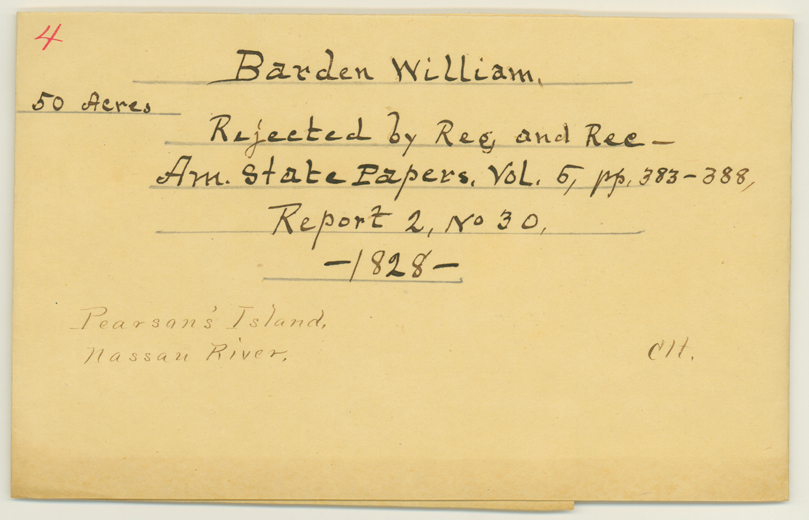 4
Barden William.
50 Acres
Rejected by Reg, and Rec —
Am. State Papers. Vol. 5, pp. 383-388,
Report 2, No 30,
-1828-
Pearson's Island,
Nassau River.